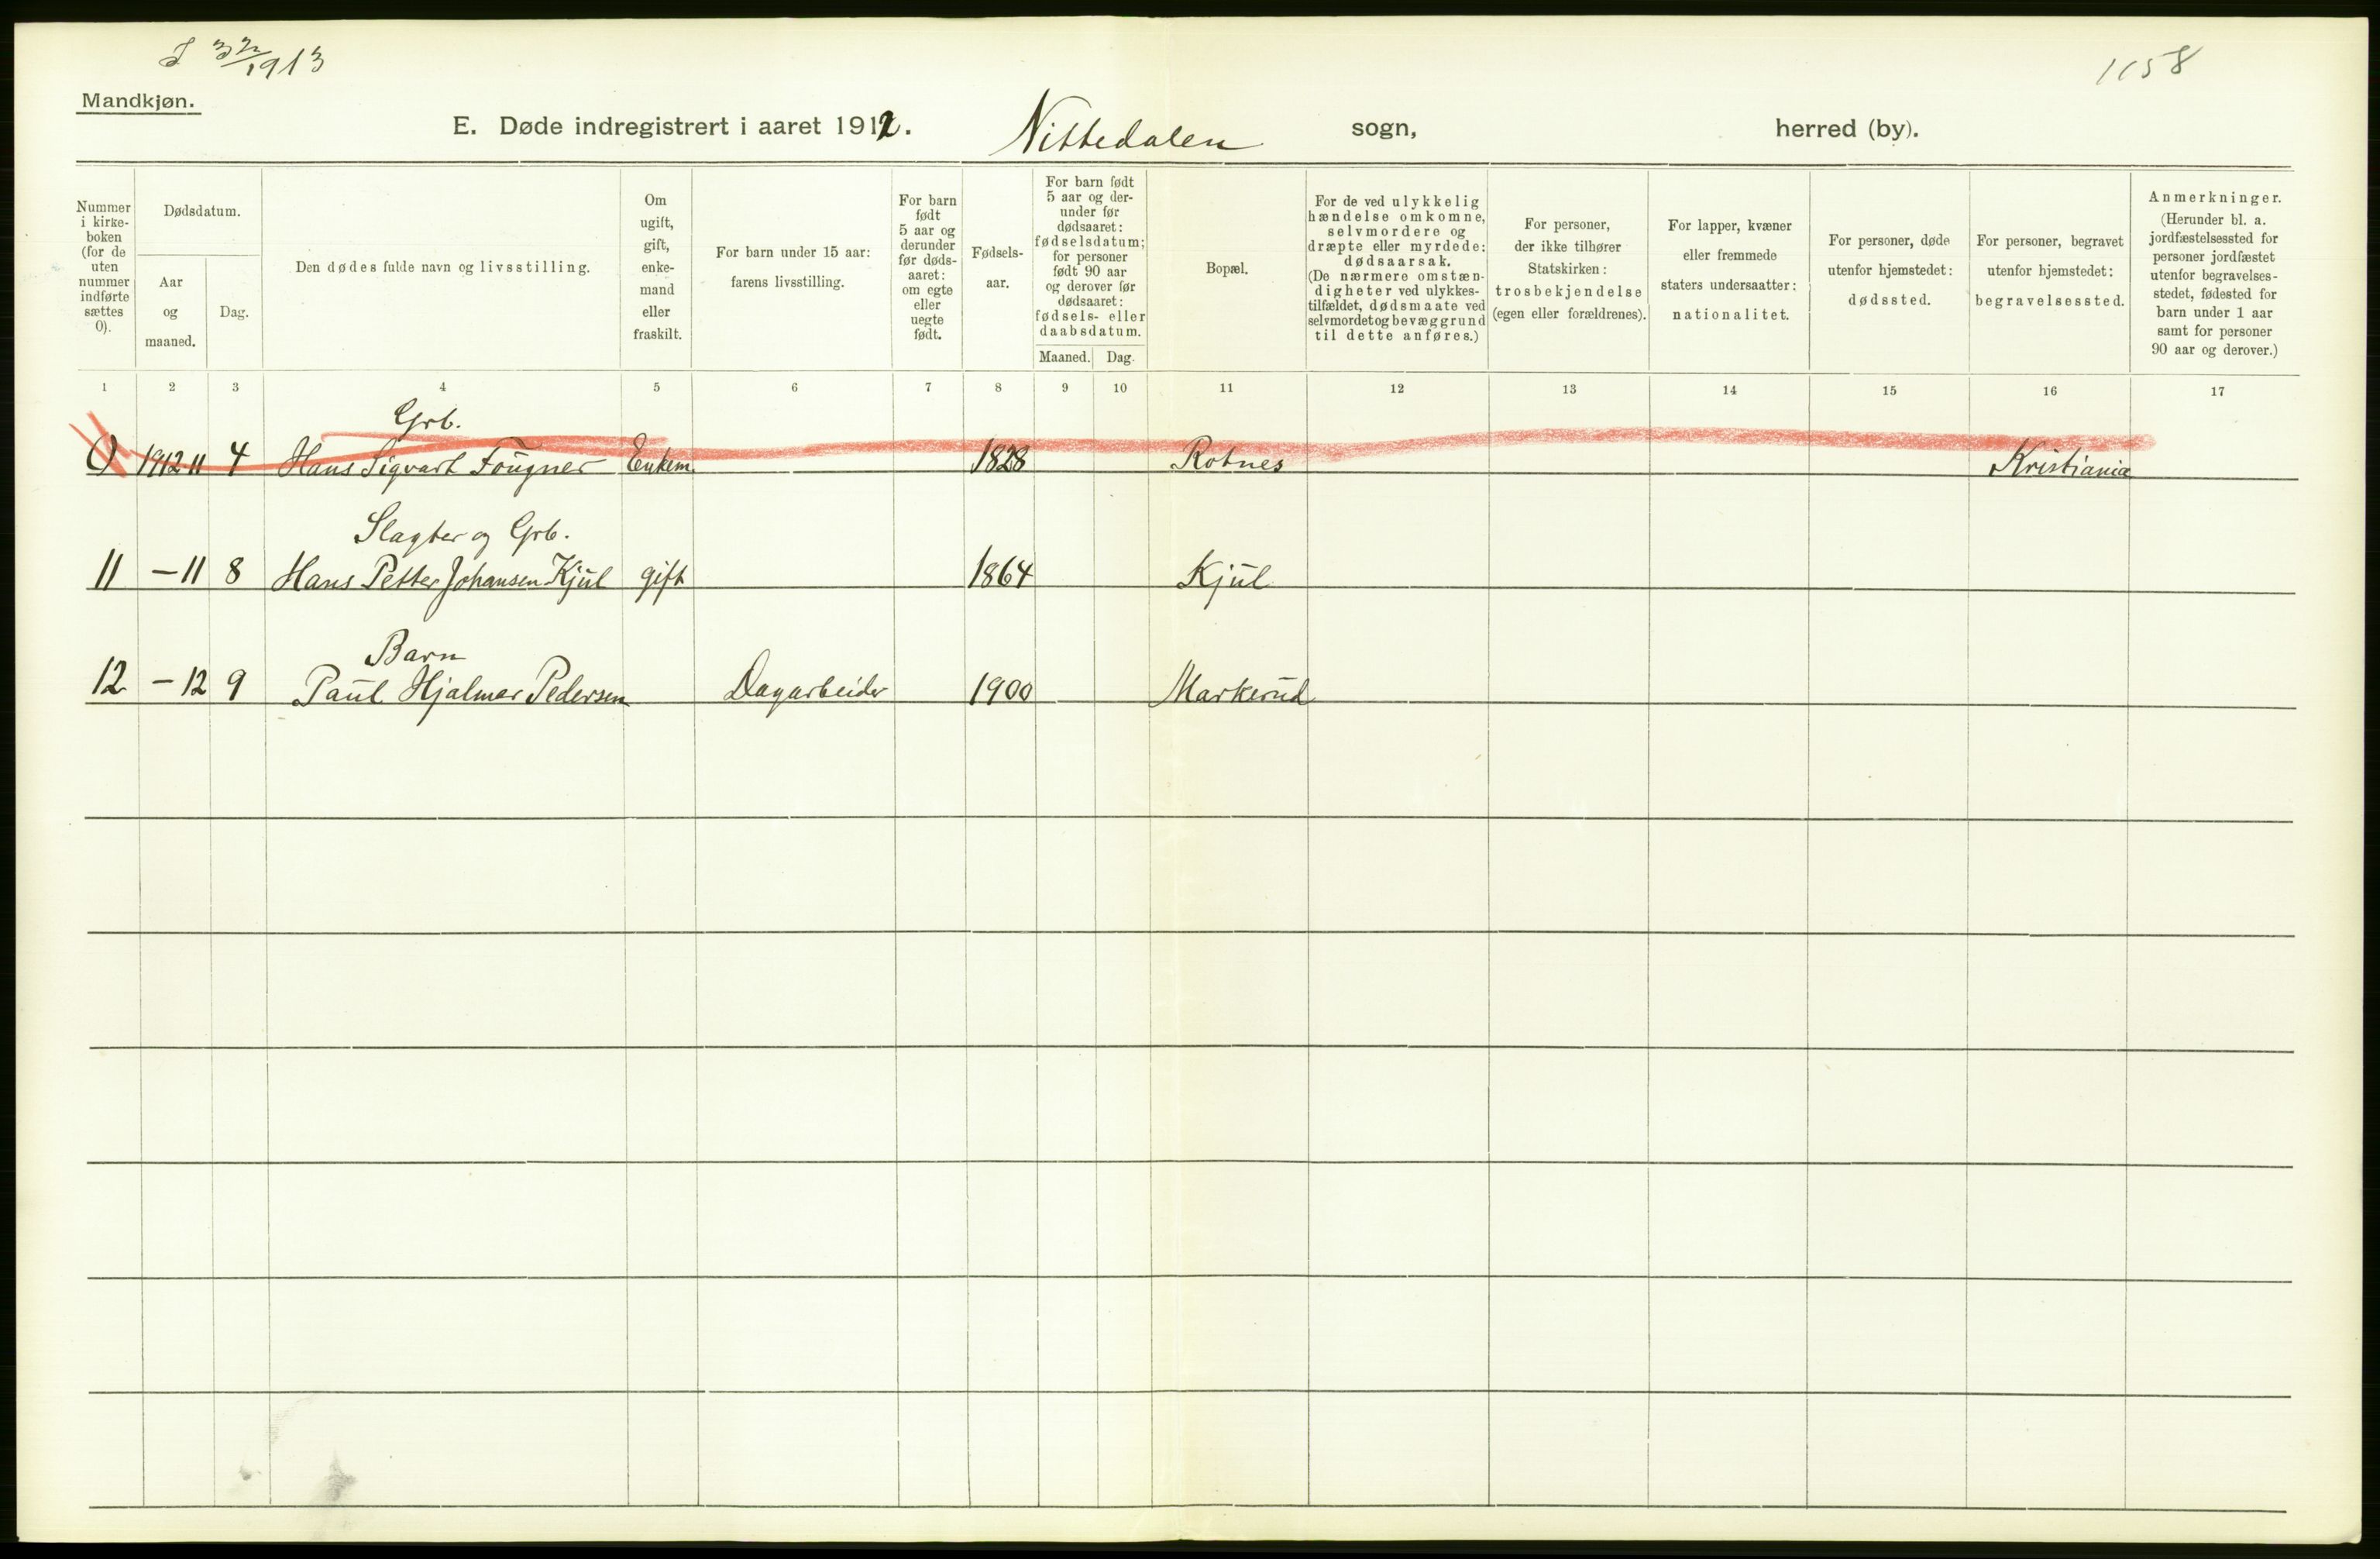 J 32/1913
1158
Mandkjøn.
E. Døde indregistrert i aaret 1912. Nittedalen sogn, herred (by).
Nummer i kirke- boken (for de uten nummer indførte sættes 0).
Dødsdatum.
Aar og maaned.
Dag.
Den dødes fulde navn og livsstilling.
Om ugift, gift, enke- mand eller fraskilt.
For barn under 15 aar: farens livsstilling.
For barn født 5 aar og derunder før døds- aaret: om egte eller uegte født.
Fødsels- aar.
For barn født 5 aar og der- under før dødsaaret: fødselsdatum; for personer født 90 aar og derover før dødsaaret: fødsels- eller daabsdatum.
Maaned. Dag.
Bopæl.
For de ved ulykkelig hændelse omkomne, selvmordere og dræpte eller myrdede: dødsaarsak. (De nærmere omstæn- digheter ved ulykkes- tilfældet, dødsmaate ved selvmordet og bevæggrund til dette anføres.)
For personer, der ikke tilhører Statskirken: trosbekjendelse (egen eller forældrenes).
For lapper, kvæner eller fremmede staters undersaatter: nationalitet.
For personer, døde utenfor hjemstedet: dødssted.
For personer, begravet utenfor hjemstedet: begravelsessted.
Anmerkninger. (Herunder bl. a. jordfæstelsessted for personer jordfæstet utenfor begravelses- stedet, fødested for barn under 1 aar samt for personer 90 aar og derover.)
1 2 3 4 5 6 7 8 9 10 11 12 13 14 15 16 17
Grb.
0 1912 11 4 Hans Sigvart Fougner Enkem. 1828 Rotnes Kristiania
Slagter og Grb.
11 – 11 8 Hans Petter Johansen Kjul gift 1864 Kjul
Barn
12 – 12 9 Paul Hjalmar Pedersen Dagarbeider 1900 Markerud